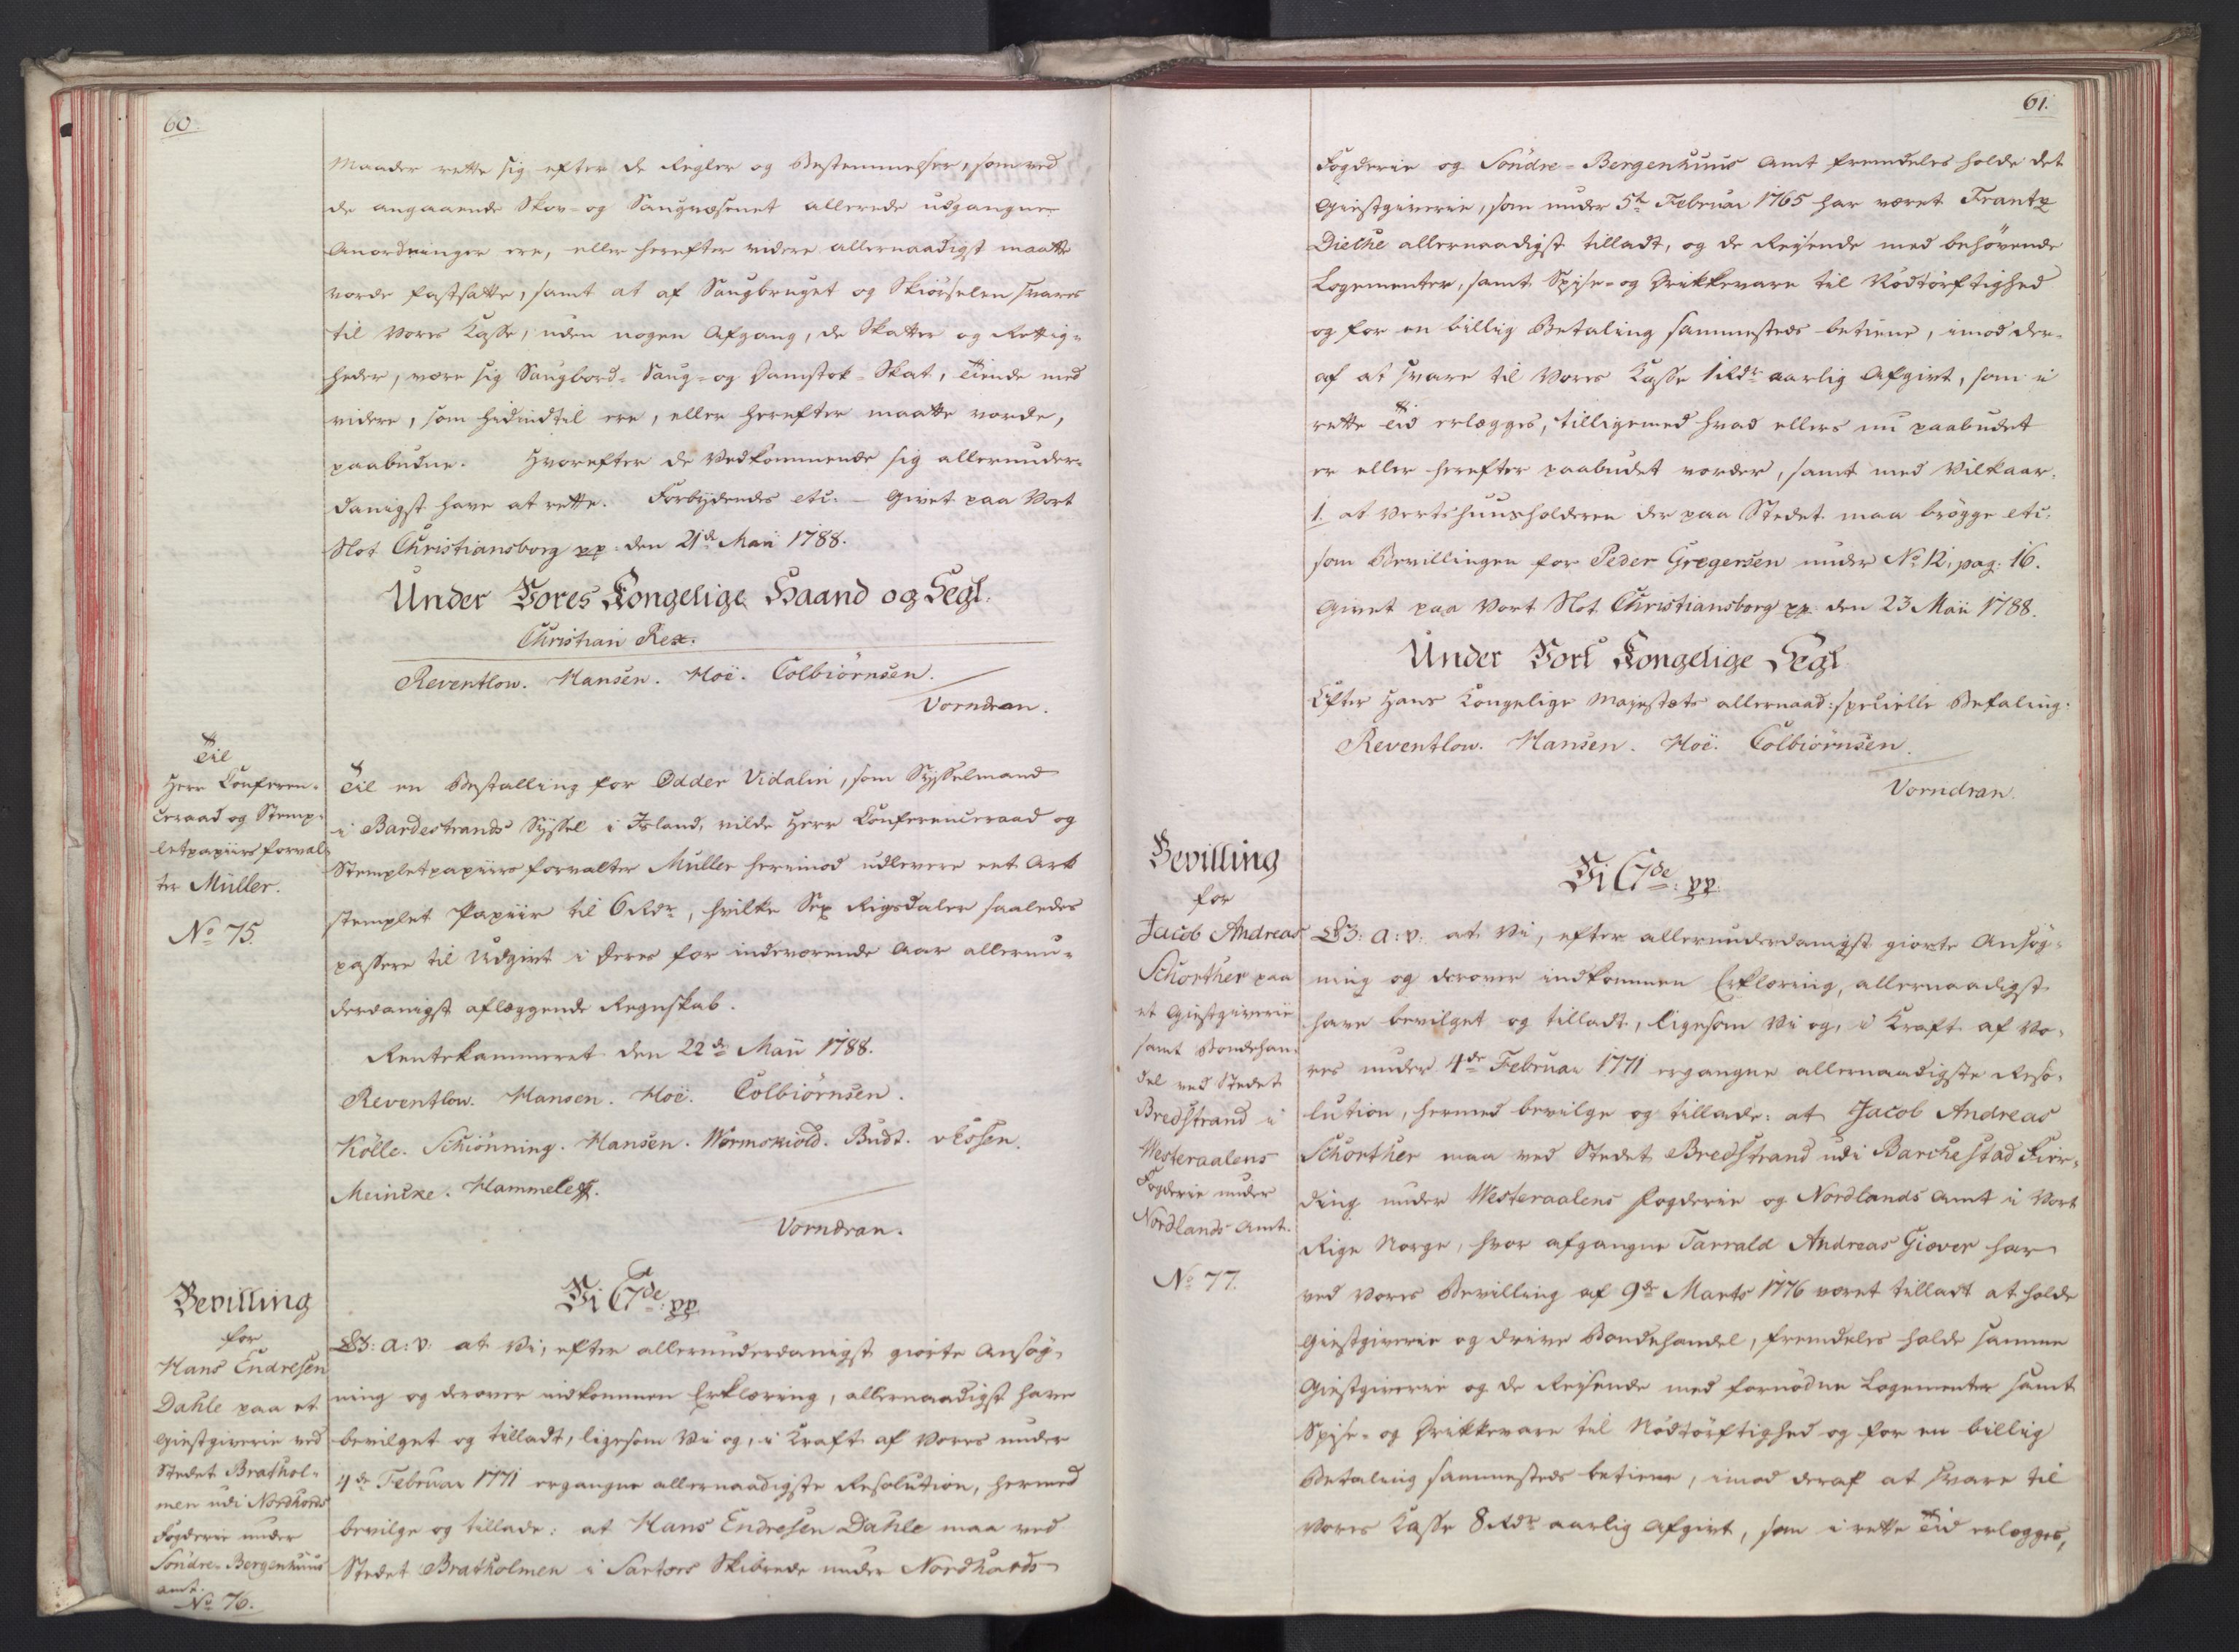 60.
Maader rette sig efter de Regler og Bestemmelser, som ved
de angaaende Skov- og Saugvæsenet allerede udgangne
Anordninger ere, eller herefter videre allernaadigst maatte
vorde fastsatte, samt at af Saugbruget og Skiørselen svares
til Vores Kasse, uden nogen Afgang, de Skatter og Rettig-
heder, være sig Saugbord- Saug- og Damstok-Skat, Tiende med
videre, som hidindtil ere, eller herefter maatte vorde,
paabudne. Hvorefter de Vedkommende sig allerunder-
danigst have at rette. Forbydendes etc. Givet paa Vort
Slot Christiansborg pp. den 21de Maii 1788.
Under Vores Kongelige Haand og Segl.
Christian Rex.
Reventlow. Hansen. Hoë. Colbiörnsen.
Vorndran.
Til
Herr Conferen-
ceraad og Stemp-
letpapiirsforval-
ter Müller.
No 75.
Til en Bestalling for Odder Vidalin, som Sysselmand
i Bardestrands Syssel i Island, vilde Herr Conferenceraad og
Stempletpapiirsforvalter Müller herimod udlevere eet Ark
stemplet Papiir til 6 Rdr, hvilke Sex Rigsdaler saaledes
passere til Udgivt i Deres for indeværende Aar allerun-
derdanigst aflæggende Regnskab.
Rentekammeret den 22de Maii 1788.
Reventlow. Hansen. Hoë. Colbiörnsen.
Kölle. Schiönning. Hansen. Wormskiold. Budt. v Essen.
Meincke. Hammeleff.
Vorndran.
Bevilling
for
Hans Endresen
Dahle paa et
Giestgiverie ved
Stedet Brathol-
men udi Nordhords
Fogderie under
Söndre-Bergenhuus
Amt.
No 76.
Vi C 7de: pp.
G3: A: V: at Vi, efter allerunderdanigst giorte Ansög-
ning og derover indkommen Erklæring, allernaadigst have
bevilget og tilladt, ligesom Vi og, i Kraft af Vores under
4de Februar 1771 ergangne allernaadigste Resolution, hermed
bevilge og tillade: at Hans Endresen Dahle maa ved
Stedet Bratholmen i Sartors Skibrede under Nordhords
61.
Fogderie og Söndre-Bergenhuus Amt fremdeles holde det
Giestgiverie, som under 5te Februar 1765 har været Frantz
Diethe allernaadigst tilladt, og de Reisende med behövende
Logementer, samt Spise- og Drikkevare til Nödtörftighed
og for en billig Betaling sammesteds betiene, imod der-
af at svare til Vores Kasse 1 Rdr aarlig Afgivt, som i
rette Tid erlægges, tilligemed hvad ellers nu paabudet
er eller herefter paabudet vorder, samt med Vilkaar:
1. at Vertshuusholderen der paa Stedet maa brögge etc.
som Bevillingen for Peder Gregersen under No 12, pag: 16.
Givet paa Vort Slot Christiansborg pp. den 23 Maii 1788.
Under Vort Kongelige Segl
Efter Hans Kongelige Majestæts allernaad: specielle Befaling:
Reventlow. Hansen. Hoë. Colbiörnsen.
Vorndran.
Bevilling
for
Jacob Andreas
Schorther paa
et Giestgiverie
samt Bondehan-
del ved Stedet
Bredstrand i
Westeraalens
Fogderie under
Nordlands Amt.
No 77.
Vi C 7de: pp.
G3: A: V: at Vi, efter allerunderdanigst giorte Ansög-
ning og derover indkommen Erklæring, allernaadigst
have bevilget og tilladt, ligesom Vi og, i Kraft af Vo-
res under 4de Februar 1771 ergangne allernaadigste Reso-
lution, hermed bevilge og tillade: at Jacob Andreas
Schorther maa ved Stedet Bredstrand udi Barchestad Fier-
ding under Westeraalens Fogderie og Nordlands Amt i Vort
Rige Norge, hvor afgangne Tarrald Andreas Giæver har
ved Vores Bevilling af 9de Marts 1776 været tilladt at holde
Giestgiverie og drive Bondehandel, fremdeles holde samme
Giestgiverie og de Reisende med fornödne Logementer samt
Spise- og Drikkevare til Nödtörftighed og for en billig
Betaling sammesteds betiene, imod deraf at svare til
Vores Kasse 8 Rdr aarlig Afgivt, som i rette Tid erlægges,